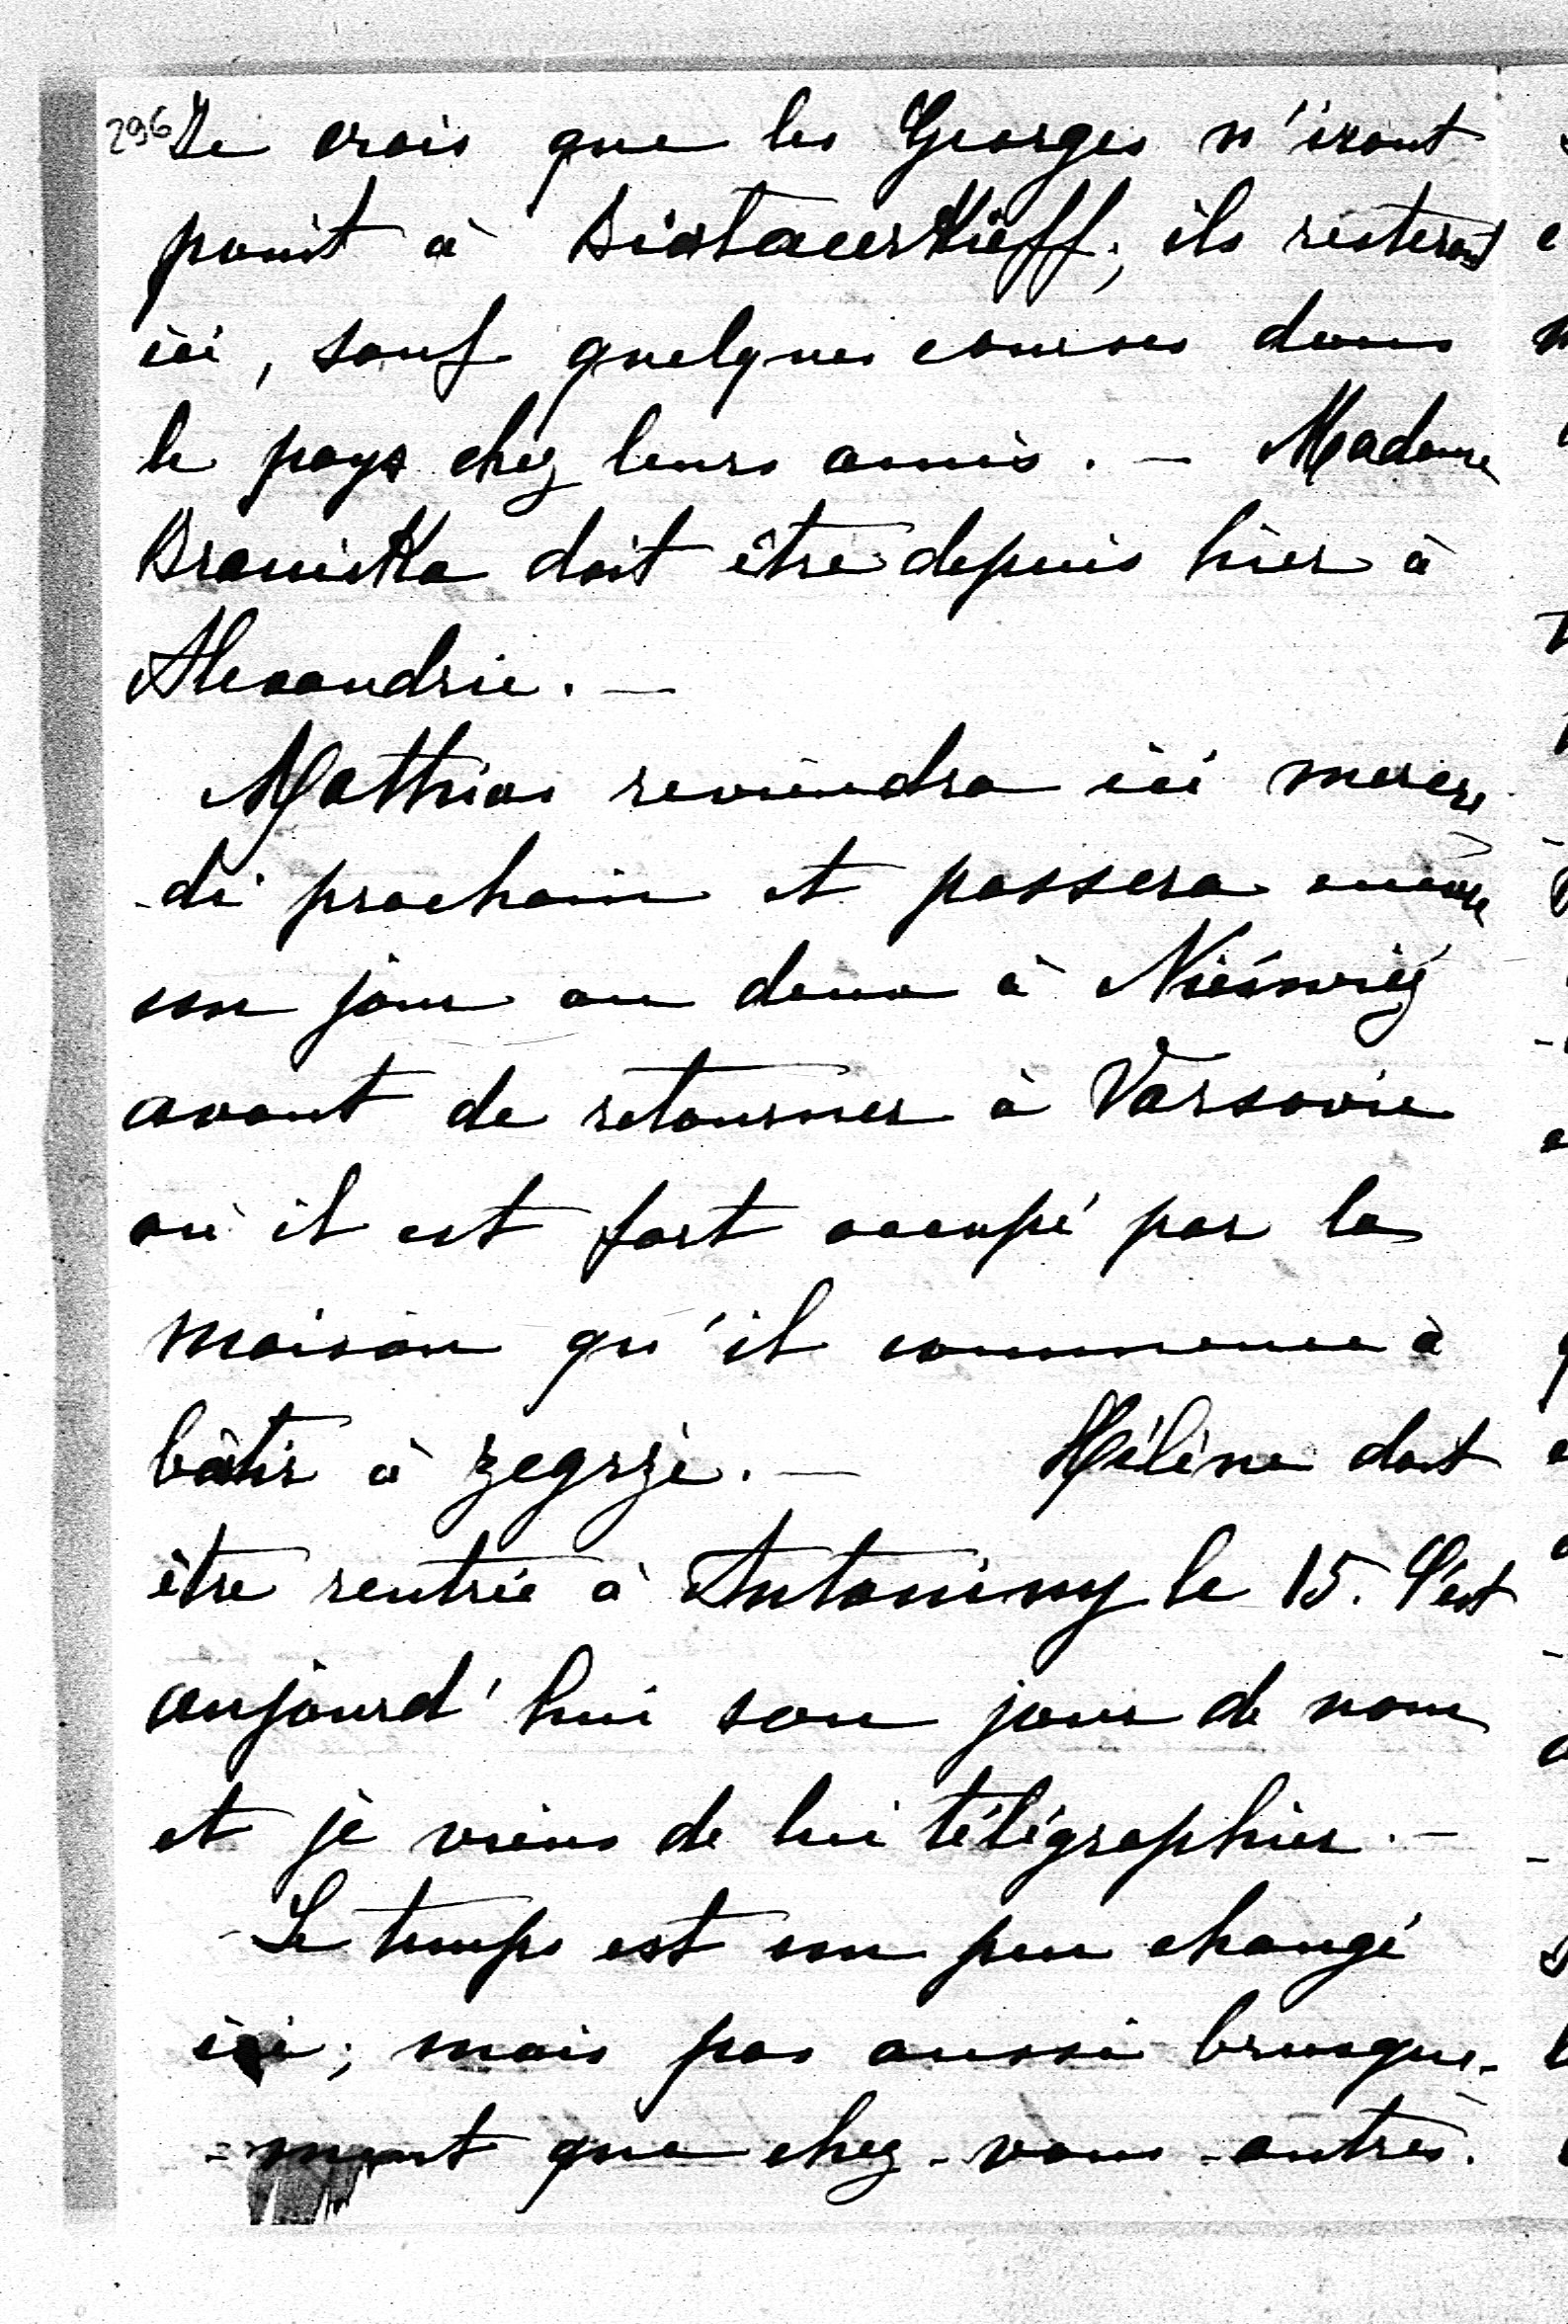 296 Je crois que les Georges n'iront
point à Biatacerkieff; ils resteront
ici, sauf quelques courses dans
le pays chez leurs amis. — Madame
Branicka doit être depuis hier à
Alexandrie. —
Matthias reviendra ici mercre
-di prochain et passera encore
un jour ou deux à Nieświéź
avant de retourner à Varsovie
où il est fort occupé par la
maison qu'il commence à
bâtir à Zegrze. — Hélène doit
être rentrée à Antoniny le 15. C'est
aujourd'hui son jour de nom
et je viens de lui télégraphier. —
Le temps est un peu changé
ici; mais pas aussi brusque-
-ment que chez-vous-autres.